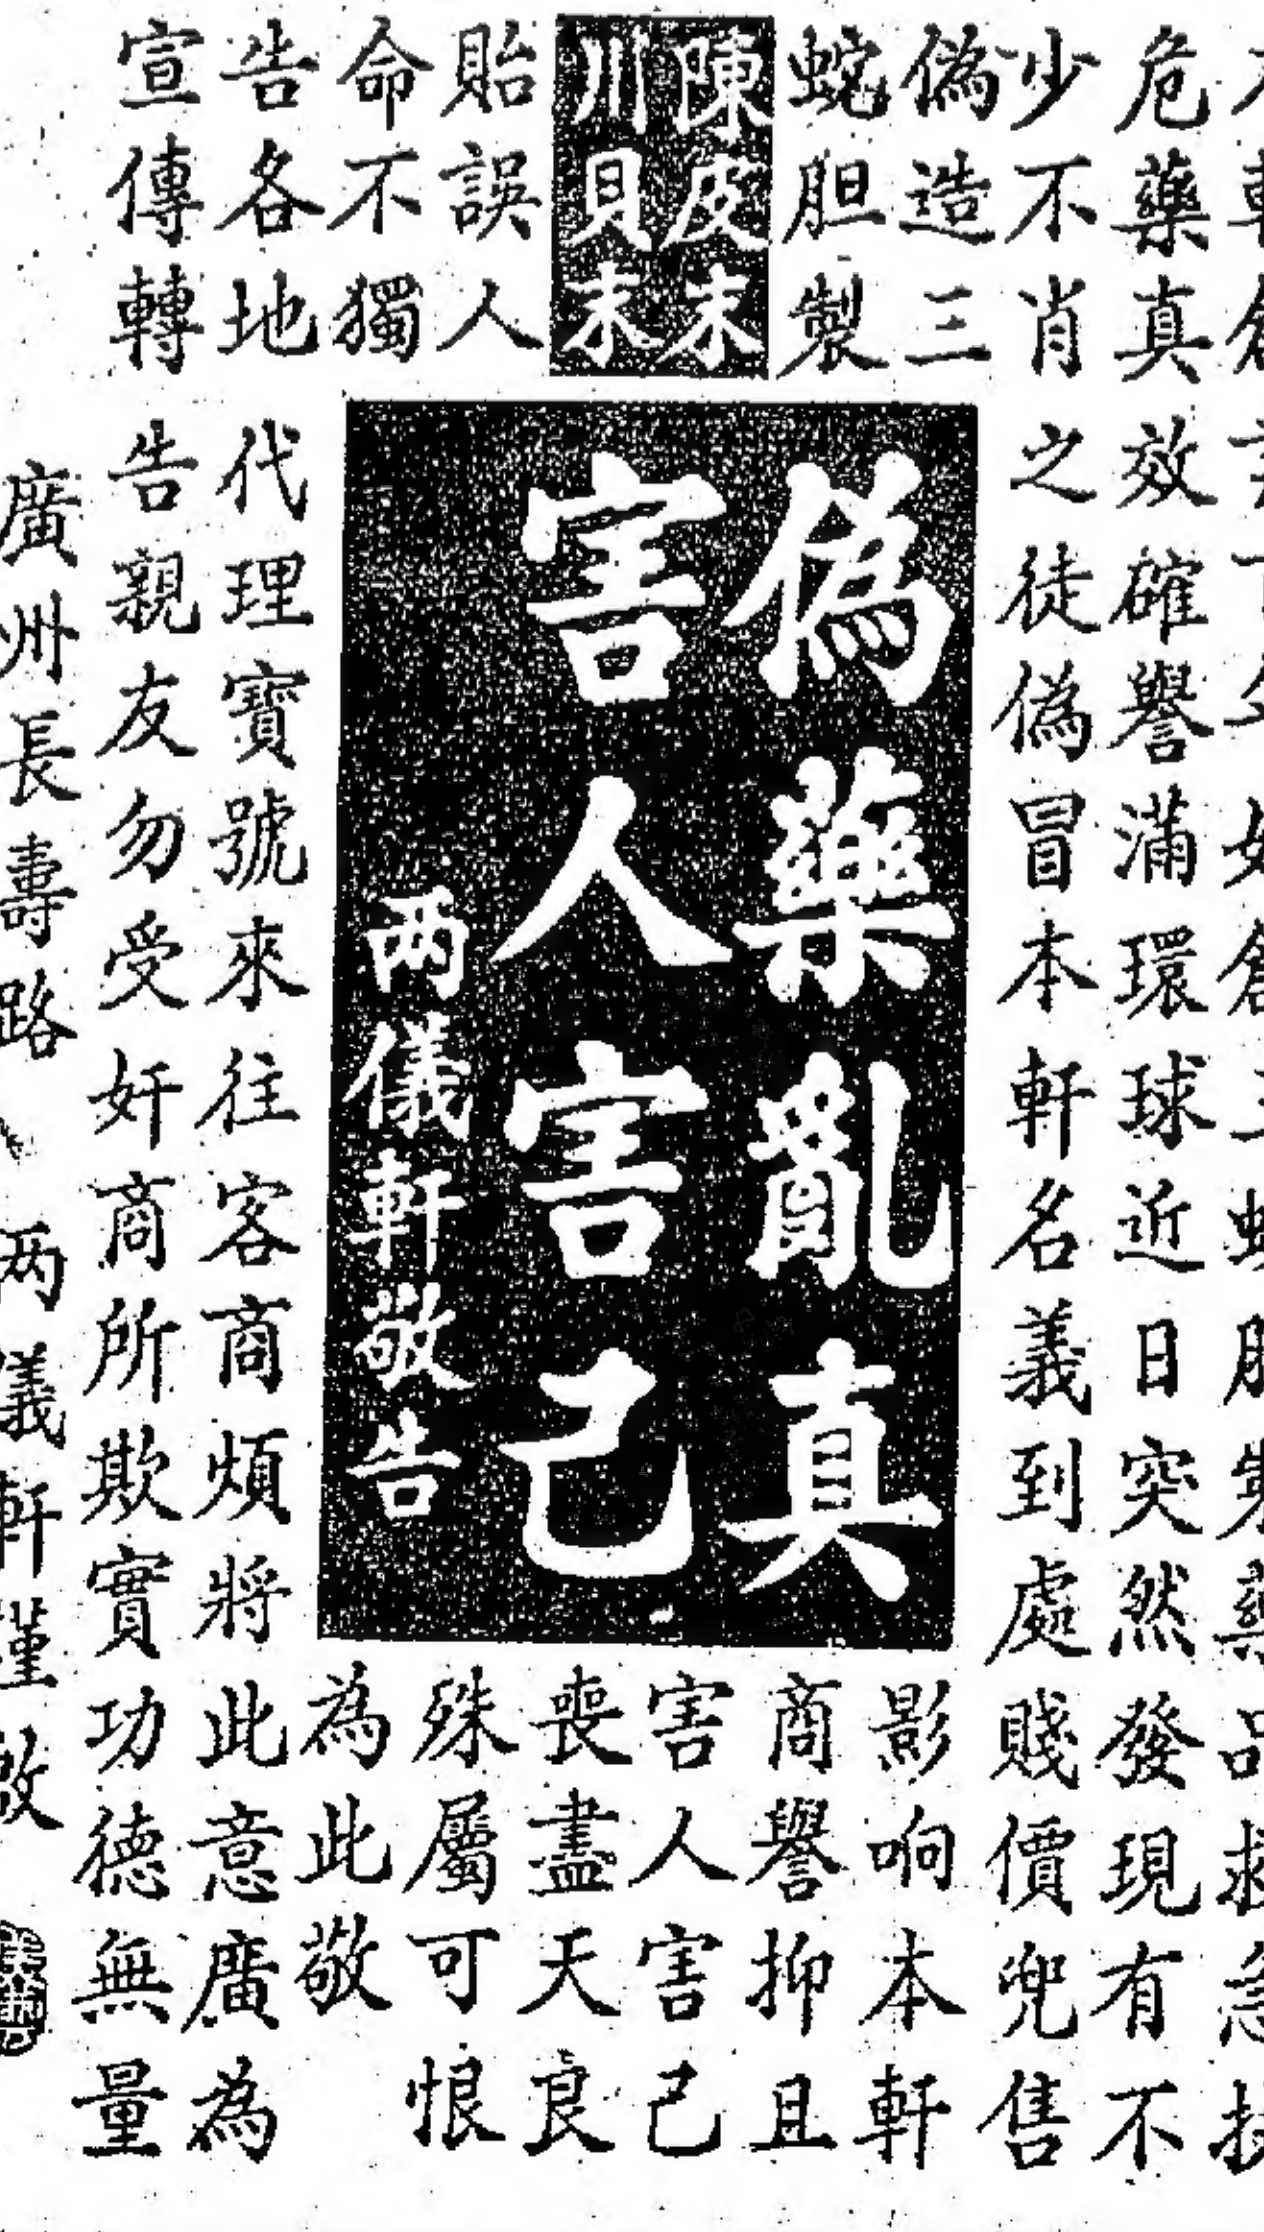 危藥真效確譽滿環球近日突然發現有不
少不肖之徒偽冒本軒名義到處賤價兜售
偽造三
蛇胆製
陳皮末
川貝末
貽誤人
命不獨
偽藥亂真
害人害己
两儀軒敬告
影响本軒
商譽抑且
害人害己
喪盡天良
殊屬可恨
為此敬
告各地代理寶號來往客商煩將此意廣為
宣傳轉告親友勿受奸商所欺實功德無量
廣州長壽路 两儀軒謹啟